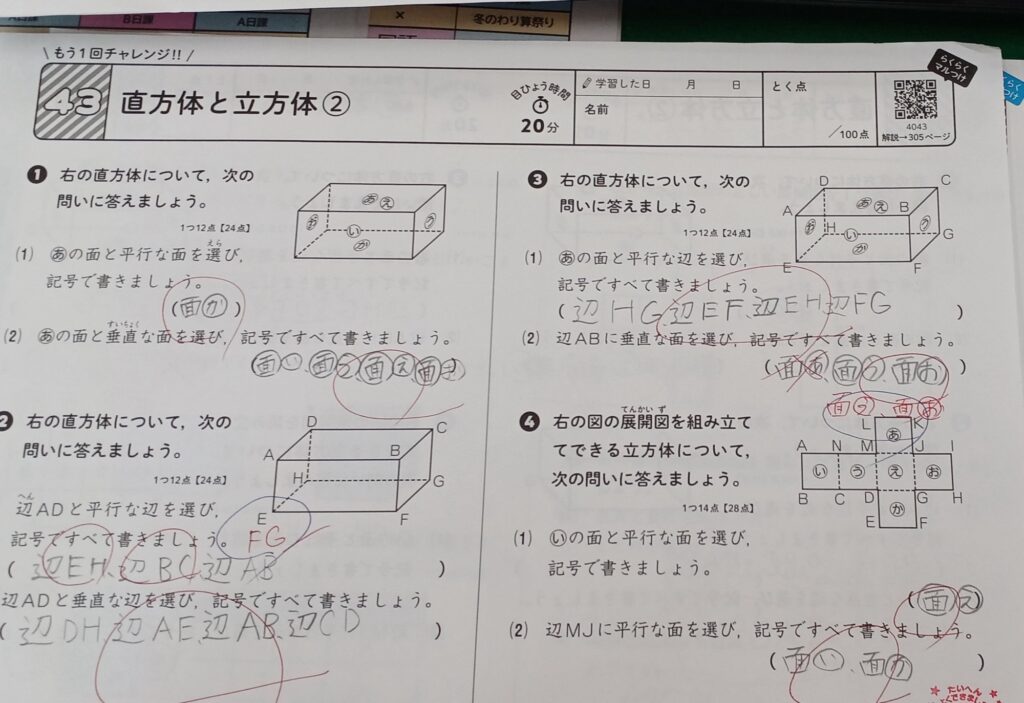 B日課
A日課
×
冬のわり算祭り
\ もう1回チャレンジ!! /
43 直方体と立方体②
目ひょう時間
20分
学習した日 月 日
名前
とく点
/100点
4043
解説→305ページ
らくらく
マルつけ
❶ 右の直方体について,次の
問いに答えましょう。
1つ12点【24点】
あ え お い う か
(1) あの面と平行な面を選び,
えら
記号で書きましょう。
(面か)
(2) あの面と垂直な面を選び,記号ですべて書きましょう。
すいちょく
(面い、面う、面え、面お)
2 右の直方体について,次の
問いに答えましょう。
1つ12点【24点】
D C A B H G E F
辺ADと平行な辺を選び,
へん
記号ですべて書きましょう。
FG
(辺EH、辺BC、辺AB)
辺ADと垂直な辺を選び,記号ですべて書きましょう。
(辺DH、辺AE、辺AB、辺CD)
❸ 右の直方体について,次の
問いに答えましょう。
1つ12点【24点】
D C A あ え B お H い う G か E F
(1) あの面と平行な辺を選び,
記号ですべて書きましょう。
(辺HG、辺EF、辺EH 辺FG)
(2) 辺ABに垂直な面を選び,記号ですべて書きましょう。
(面あ、面う、面お)
面う 面お
❹ 右の図の展開図を組み立て
てんかい ず
てできる立方体について,
次の問いに答えましょう。
1つ14点【28点】
K
あ
A N M J I
い う え お
B C D G H
か
E F
(1) いの面と平行な面を選び,
記号で書きましょう。
(面え)
(2) 辺MJに平行な面を選び,記号ですべて書きましょう。
(面い、面か)
たいへん
よくできました